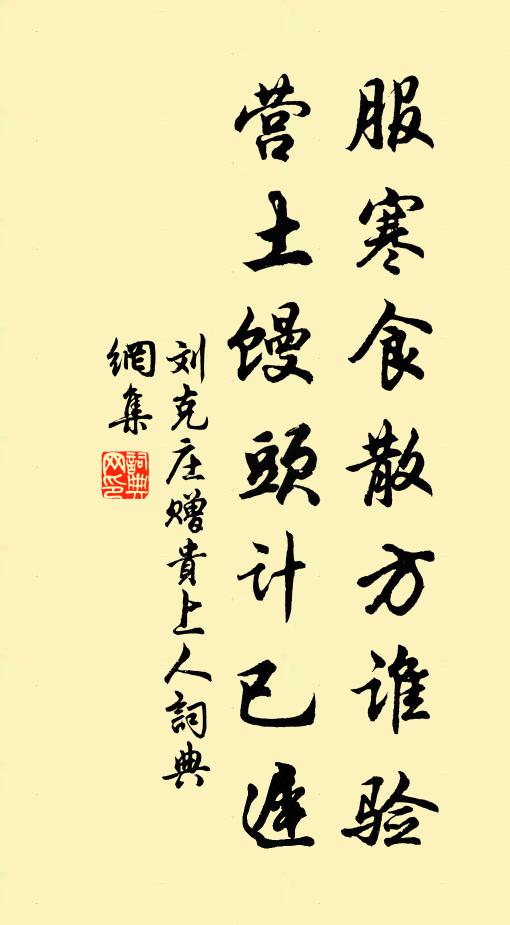 服寒食散方谁验
营土馒頭计已遲
刘克庄赠貴上人詞典
網集
詞典网